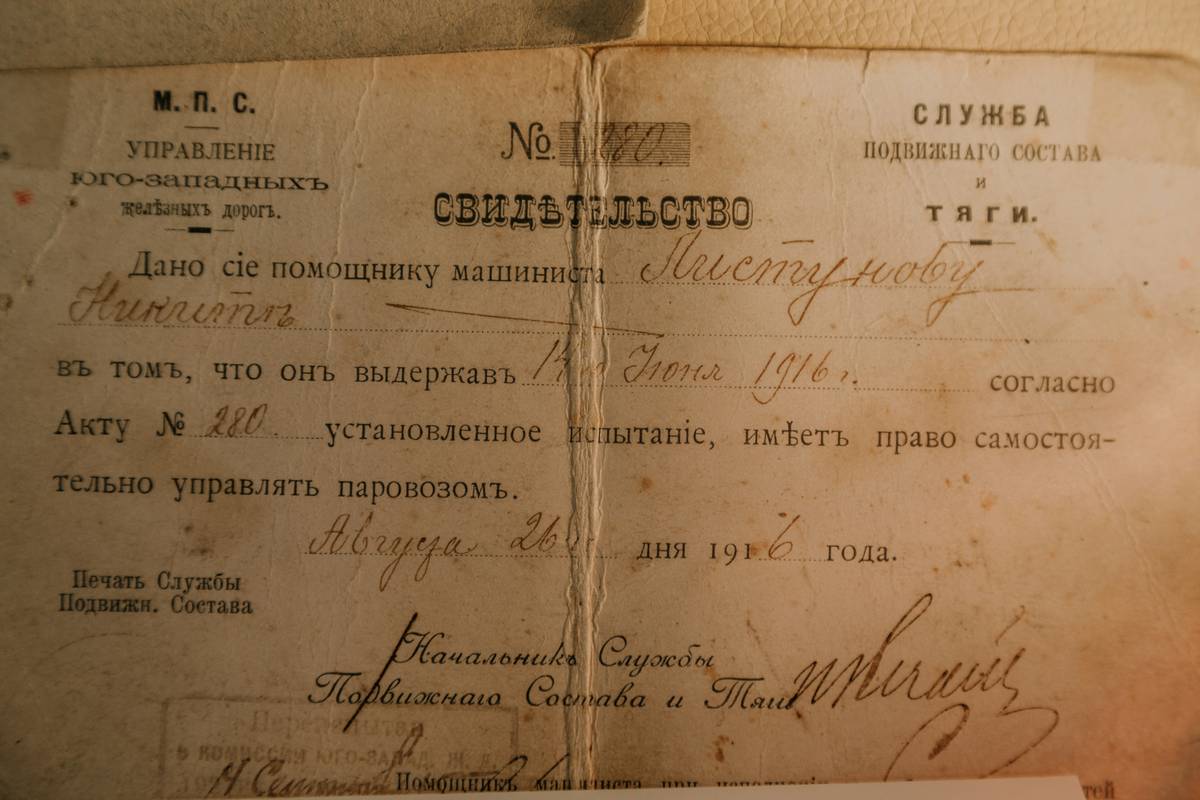 М. П. С.
УПРАВЛЕНІЕ
ЮГО-ЗАПАДНЫХЪ
желѣзныхъ дорогъ.
№ 280.
СЛУЖБА
ПОДВИЖНАГО СОСТАВА
И
ТЯГИ.
СВИДѢТЕЛЬСТВО
Дано сіе помощнику машиниста Пистунову
Никитѣ
въ томъ, что онъ выдержавъ 14 Іюня 1916 г. согласно
Акту № 280. установленное испытаніе, имѣетъ право самостоя-
тельно управлять паровозомъ.
Августа 26 дня 1916 года.
Печать Службы
Подвижн. Состава
Начальникъ Службы
Подвижнаго Состава и Тяги
в комиссии Юго-Запад. ж. д.
Помощникъ машиниста при